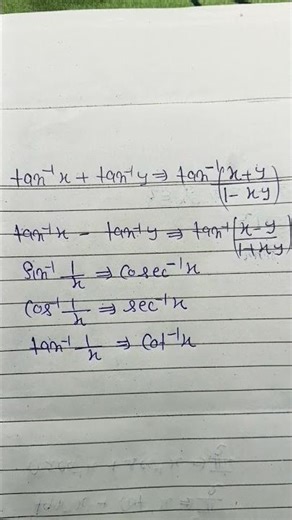 tan⁻¹x + tan⁻¹y ⇒ tan⁻¹((x+y)/(1-xy))
tan⁻¹x - tan⁻¹y ⇒ tan⁻¹((x-y)/(1+xy))
Sin⁻¹ 1/x ⇒ Cosec⁻¹x
Cos⁻¹ 1/x ⇒ sec⁻¹x
tan⁻¹ 1/x ⇒ Cot⁻¹x